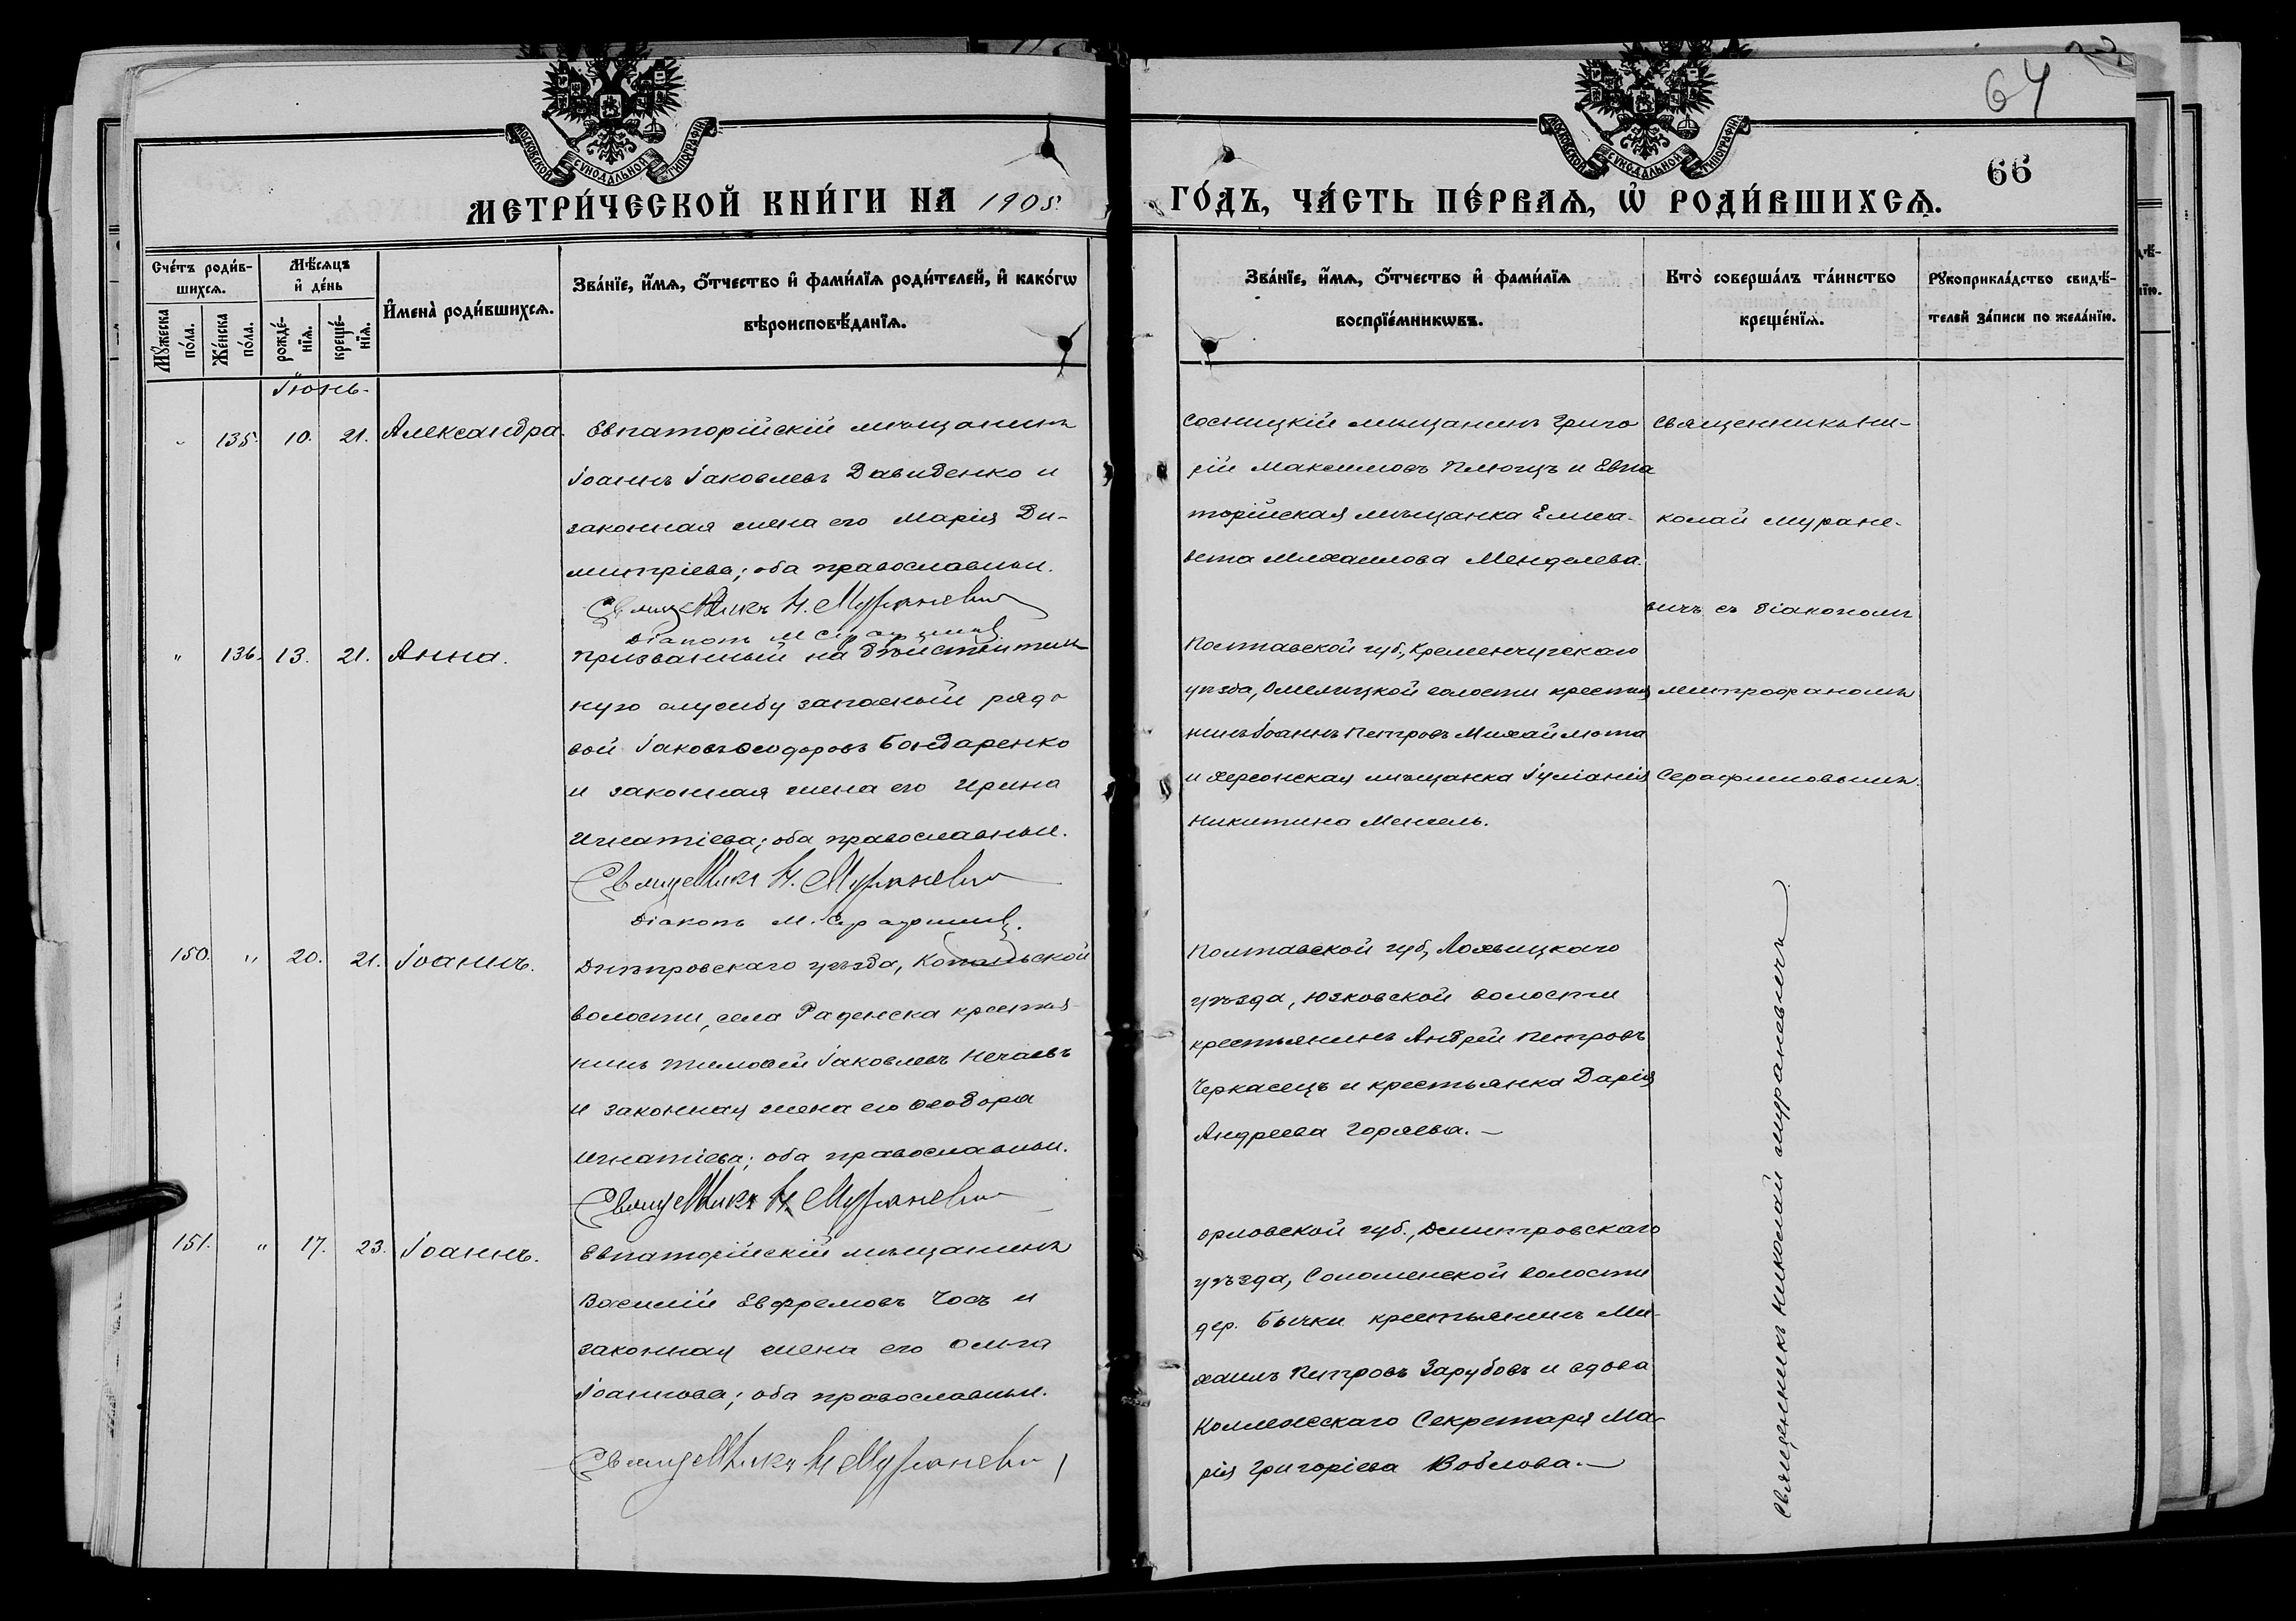 64
66
МОСКОВСКОЙ СѴНОДАЛЬНОЙ ТИПОГРАФІИ
МОСКОВСКОЙ СѴНОДАЛЬНОЙ ТИПОГРАФІИ
МЕТРИ́ЧЕСКОЙ КНИ́ГИ НА 1905
ГО́ДЪ, ЧА́СТЬ ПЕ́РВАѦ, Ѡ҆ РОДИ́ВШИХСѦ.
Сче́тъ роди́в-
шихсѧ.
Мꙋ́жеска по́ла.
Же́нска по́ла.
Мѣ́сѧцъ
и҆ де́нь
рожде́-
нїѧ.
креще́-
нїѧ.
И҆мена̀ роди́вшихсѧ.
Зва́нїе, и҆́мѧ, ѻ҆́тчество и҆ фами́лїѧ роди́телей, и҆ како́гѡ
вѣроисповѣ́данїѧ.
Зва́нїе, и҆́мѧ, ѻ҆́тчество и҆ фами́лїѧ
воспрїе́мникѡвъ.
Кто̀ соверша́лъ та́инство
креще́нїѧ.
Рꙋкоприкла́дство свидѣ́-
телей за́писи по жела́нїю.
Іюнь.
" 135. 10. 21. Александра.
Евпаторійскій мѣщанинъ
Іоаннъ Іаковлевъ Давиденко и
законная жена его Марія Ди-
митріева; оба православные.
Священникъ Н. Мураневич
Діаконъ М. Серафимов
Сосницкій мѣщанинъ Григо
рій Максимовъ Плющъ и Евпа
торійская мѣщанка Елиса-
вета Михаилова Менделева.
Священникъ Ни-
колай Муране-
вичъ съ діакономъ
Митрофаномъ
Серафимовымъ.
" 136. 13. 21. Анна.
Призванный на дѣйствитель
ную службу запасный рядо
вой Іаковъ Ѳеодоровъ Бондаренко
и законная жена его Ирина
Игнатіева; оба православные.
Священникъ Н. Мураневич
Діаконъ М. Серафимов.
Полтавской губ., Кременчугскаго
уѣзда, Омельницкой волости крестья
нинъ Іоаннъ Петровъ Михайлюта
и херсонская мѣщанка Іуліанія
Никитина Менсель.
150. " 20. 21. Іоаннъ.
Днѣпровскаго уѣзда, ской
волости, села Раденска крестья-
нинъ Тимоѳей Іаковлевъ Нечаевъ
и законная жена его Ѳеодора
Игнатіева; оба православные.
Священникъ Н. Мураневич
Полтавской губ., Лохвицкаго
уѣзда, Юзковской волости
крестьянинъ Андрей Петровъ
Черкасецъ и крестьянка Дарія
Андреева Горяева.
Священникъ Николай Мураневичъ
151. " 17. 23. Іоаннъ.
Евпаторійскій мѣщанинъ
Василій Евфремовъ Чосъ и
законная жена его Ольга
Іоаннова; оба православные.
Священникъ Н Мураневич
Орловской губ., Дмитровскаго
уѣзда, Соломенской волости
дер. Бычки крестьянинъ Ми-
хаилъ Петровъ Зарубовъ и вдова
Коллежскаго Секретаря Ма-
рія Григоріева Воблова.